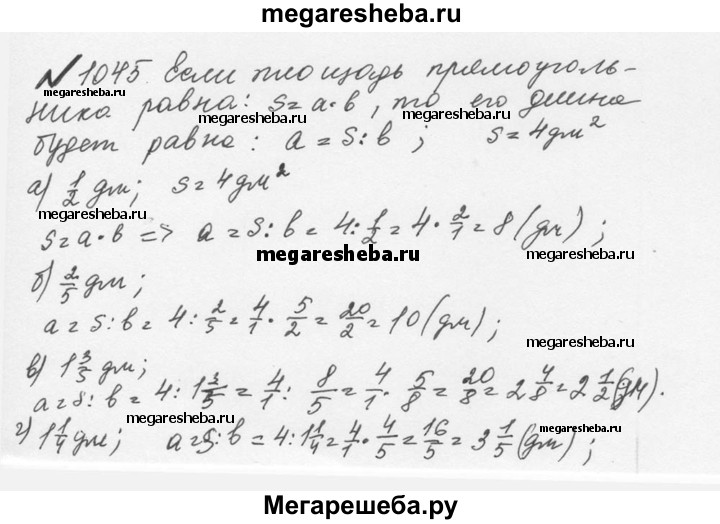 megaresheba.ru
№ 1045. Если площадь прямоуголь-
ника равна: S = a · b, то его длина
megaresheba.ru megaresheba.ru
будет равна: a = S : b ; S = 4 дм²
а) 1/2 дм; S = 4 дм²
megaresheba.ru megaresheba.ru
S = a · b => a = S : b = 4 : 1/2 = 4 · 2/1 = 8 (дм) ;
megaresheba.ru
б) 2/5 дм;
a = S : b = 4 : 2/5 = 4/1 · 5/2 = 20/2 = 10 (дм) ;
megaresheba.ru
в) 1 3/5 дм;
a = S : b = 4 : 1 3/5 = 4/1 : 8/5 = 4/1 · 5/8 = 20/8 = 2 4/8 = 2 1/2 (дм).
megaresheba.ru megaresheba.ru
г) 1 1/4 дм; a = S : b = 4 : 1 1/4 = 4/1 · 4/5 = 16/5 = 3 1/5 (дм) ;
Мегарешеба.ру